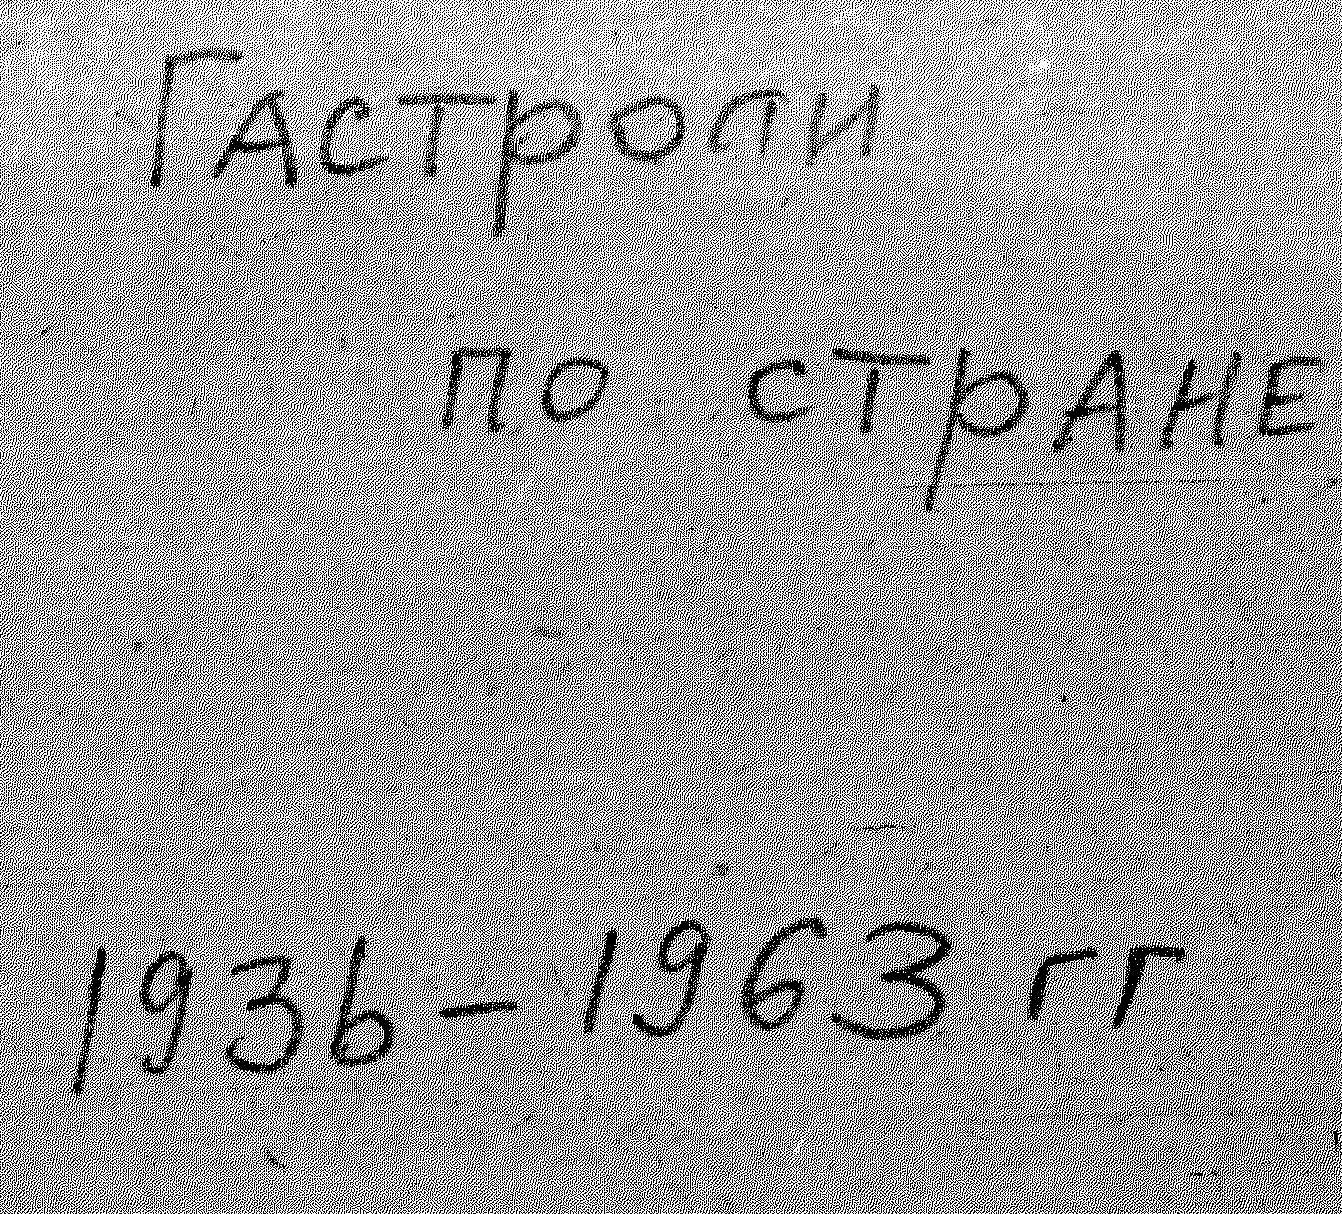 Гастроли
по стране
1936-1963 гг